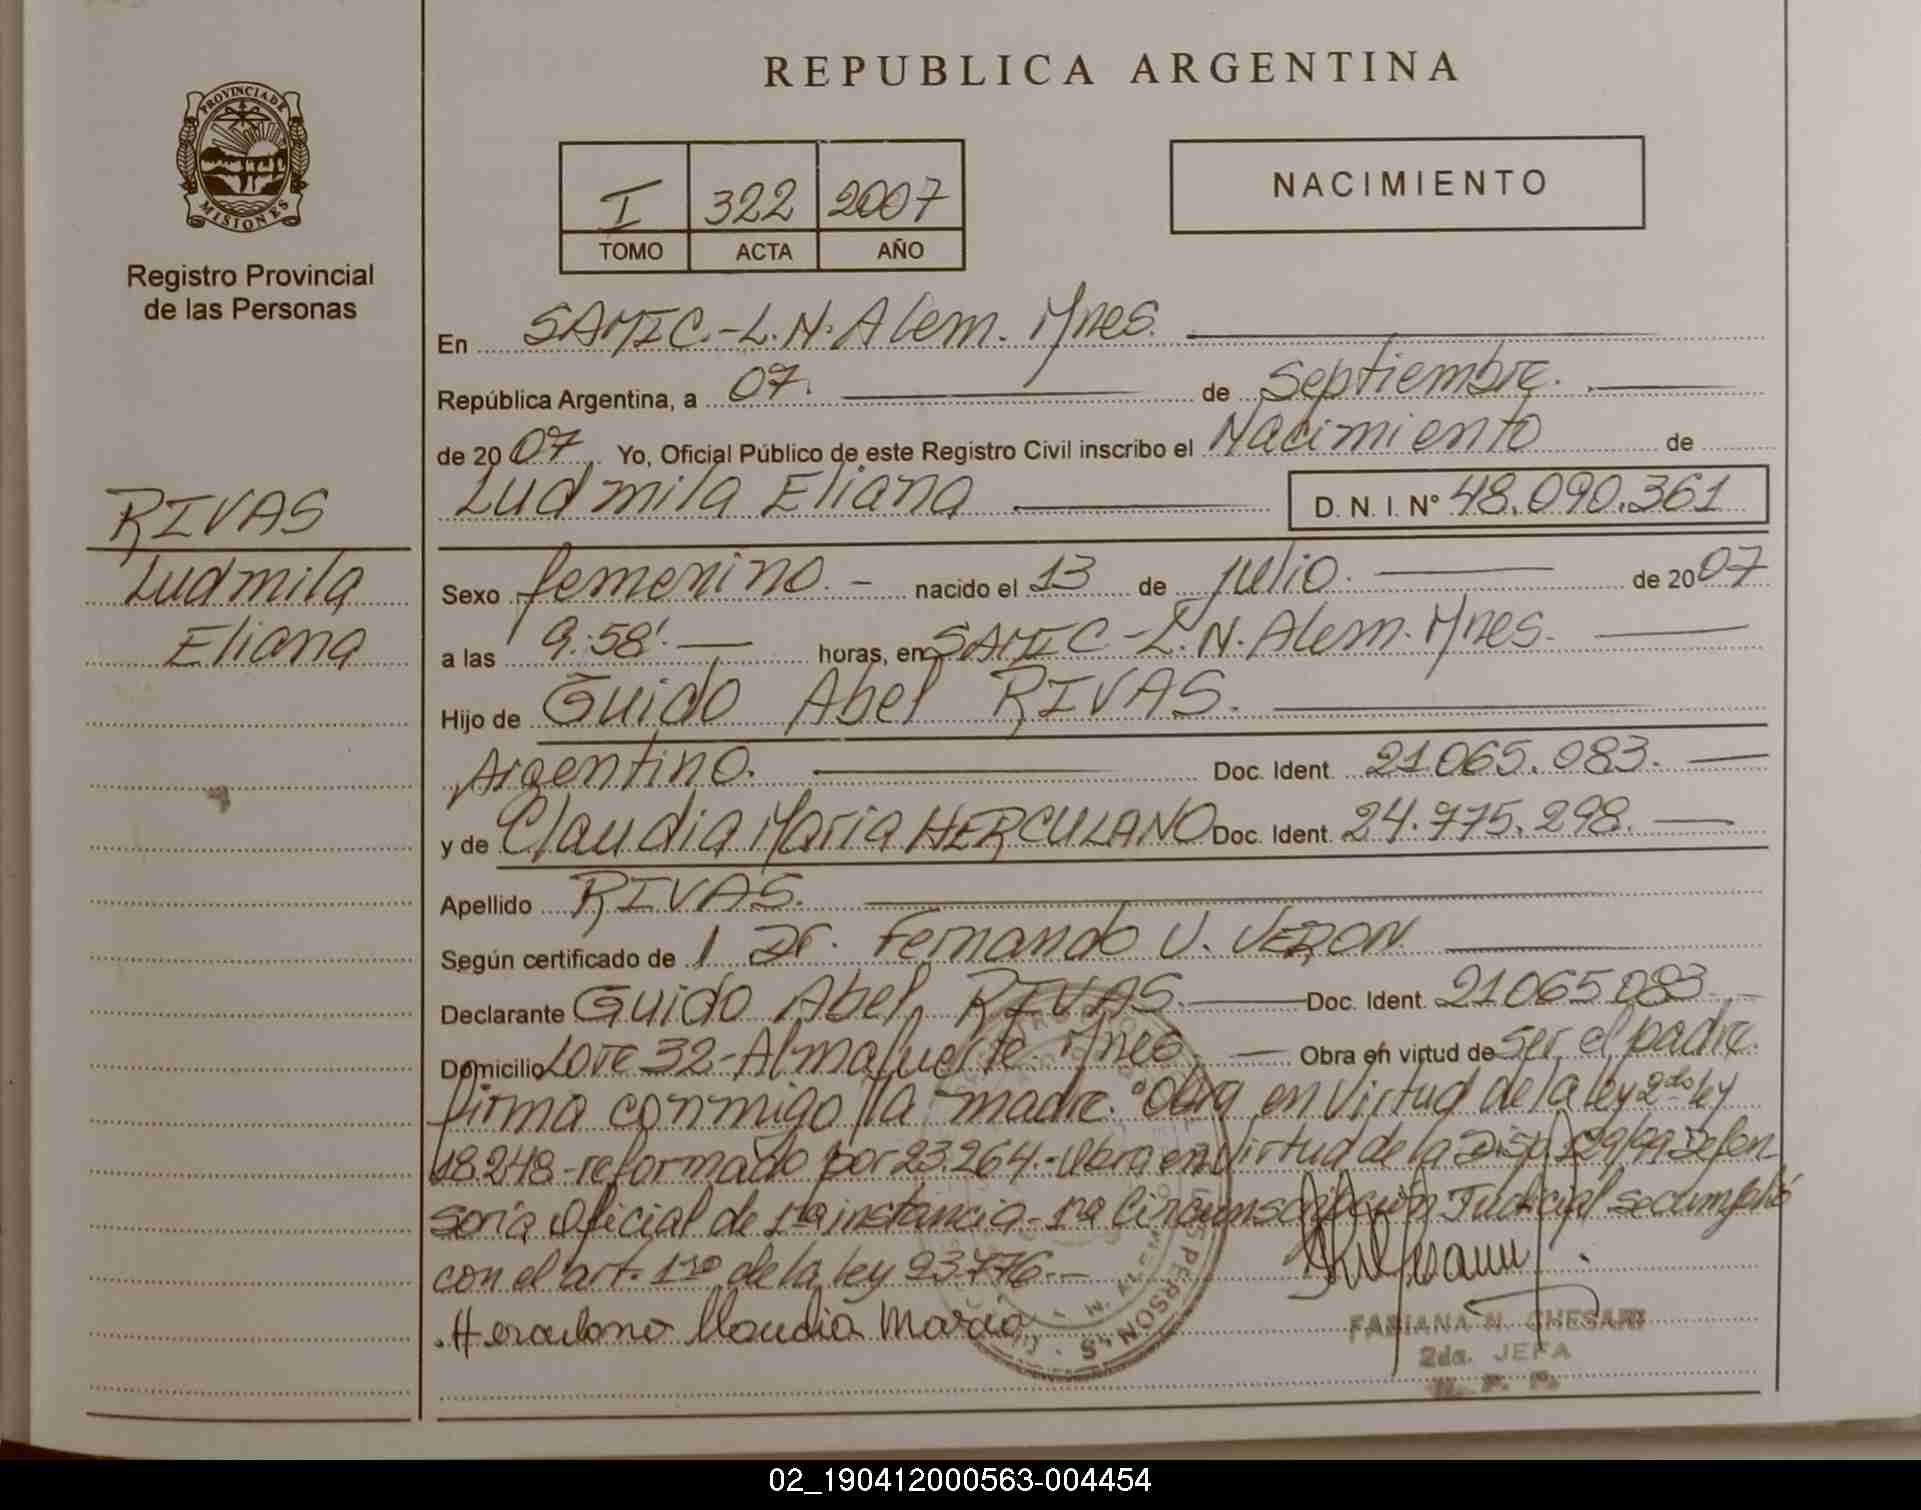 REPUBLICA ARGENTINA
PROVINCIA DE
MISIONES
Registro Provincial
de las Personas
I 322 2007
TOMO ACTA AÑO
NACIMIENTO
En SAMIC.-L.N.Alem. Mnes.
República Argentina, a 07. de Septiembre.
de 2007 Yo, Oficial Público de este Registro Civil inscribo el Nacimiento de
Ludmila Eliana D. N. I. N° 48.090.361
RIVAS
Ludmila
Eliana
Sexo femenino. - nacido el 13 de julio. de 2007
a las 9:58'. horas, en SAMIC-L.N.Alem. Mnes.
Hijo de Guido Abel RIVAS.
Argentino. Doc. Ident. 21.065.083.
y de Claudia Maria HERCULANO Doc. Ident. 24.775.298.
Apellido RIVAS.
Según certificado de Dr. Fernando V. VERON
Declarante Guido Abel RIVAS. Doc. Ident. 21065083
Domicilio Lote 32-Almafuerte. Mnes. Obra en virtud de ser el padre.
firma conmigo la madre. "Obra en Virtud de la ley 2do ley
18.248-reformado por 23.264.-Obra en Virtud de la Disp. 129/99 Defen-
soría Oficial de 1ra instancia-1ra Circunscripción Judicial se cumplió
con el art. 1ro de la ley 23.776.-
Herculano Claudia Maria
FABIANA N. CHESARI
2da. JEFA
R. P. P.
02_190412000563-004454